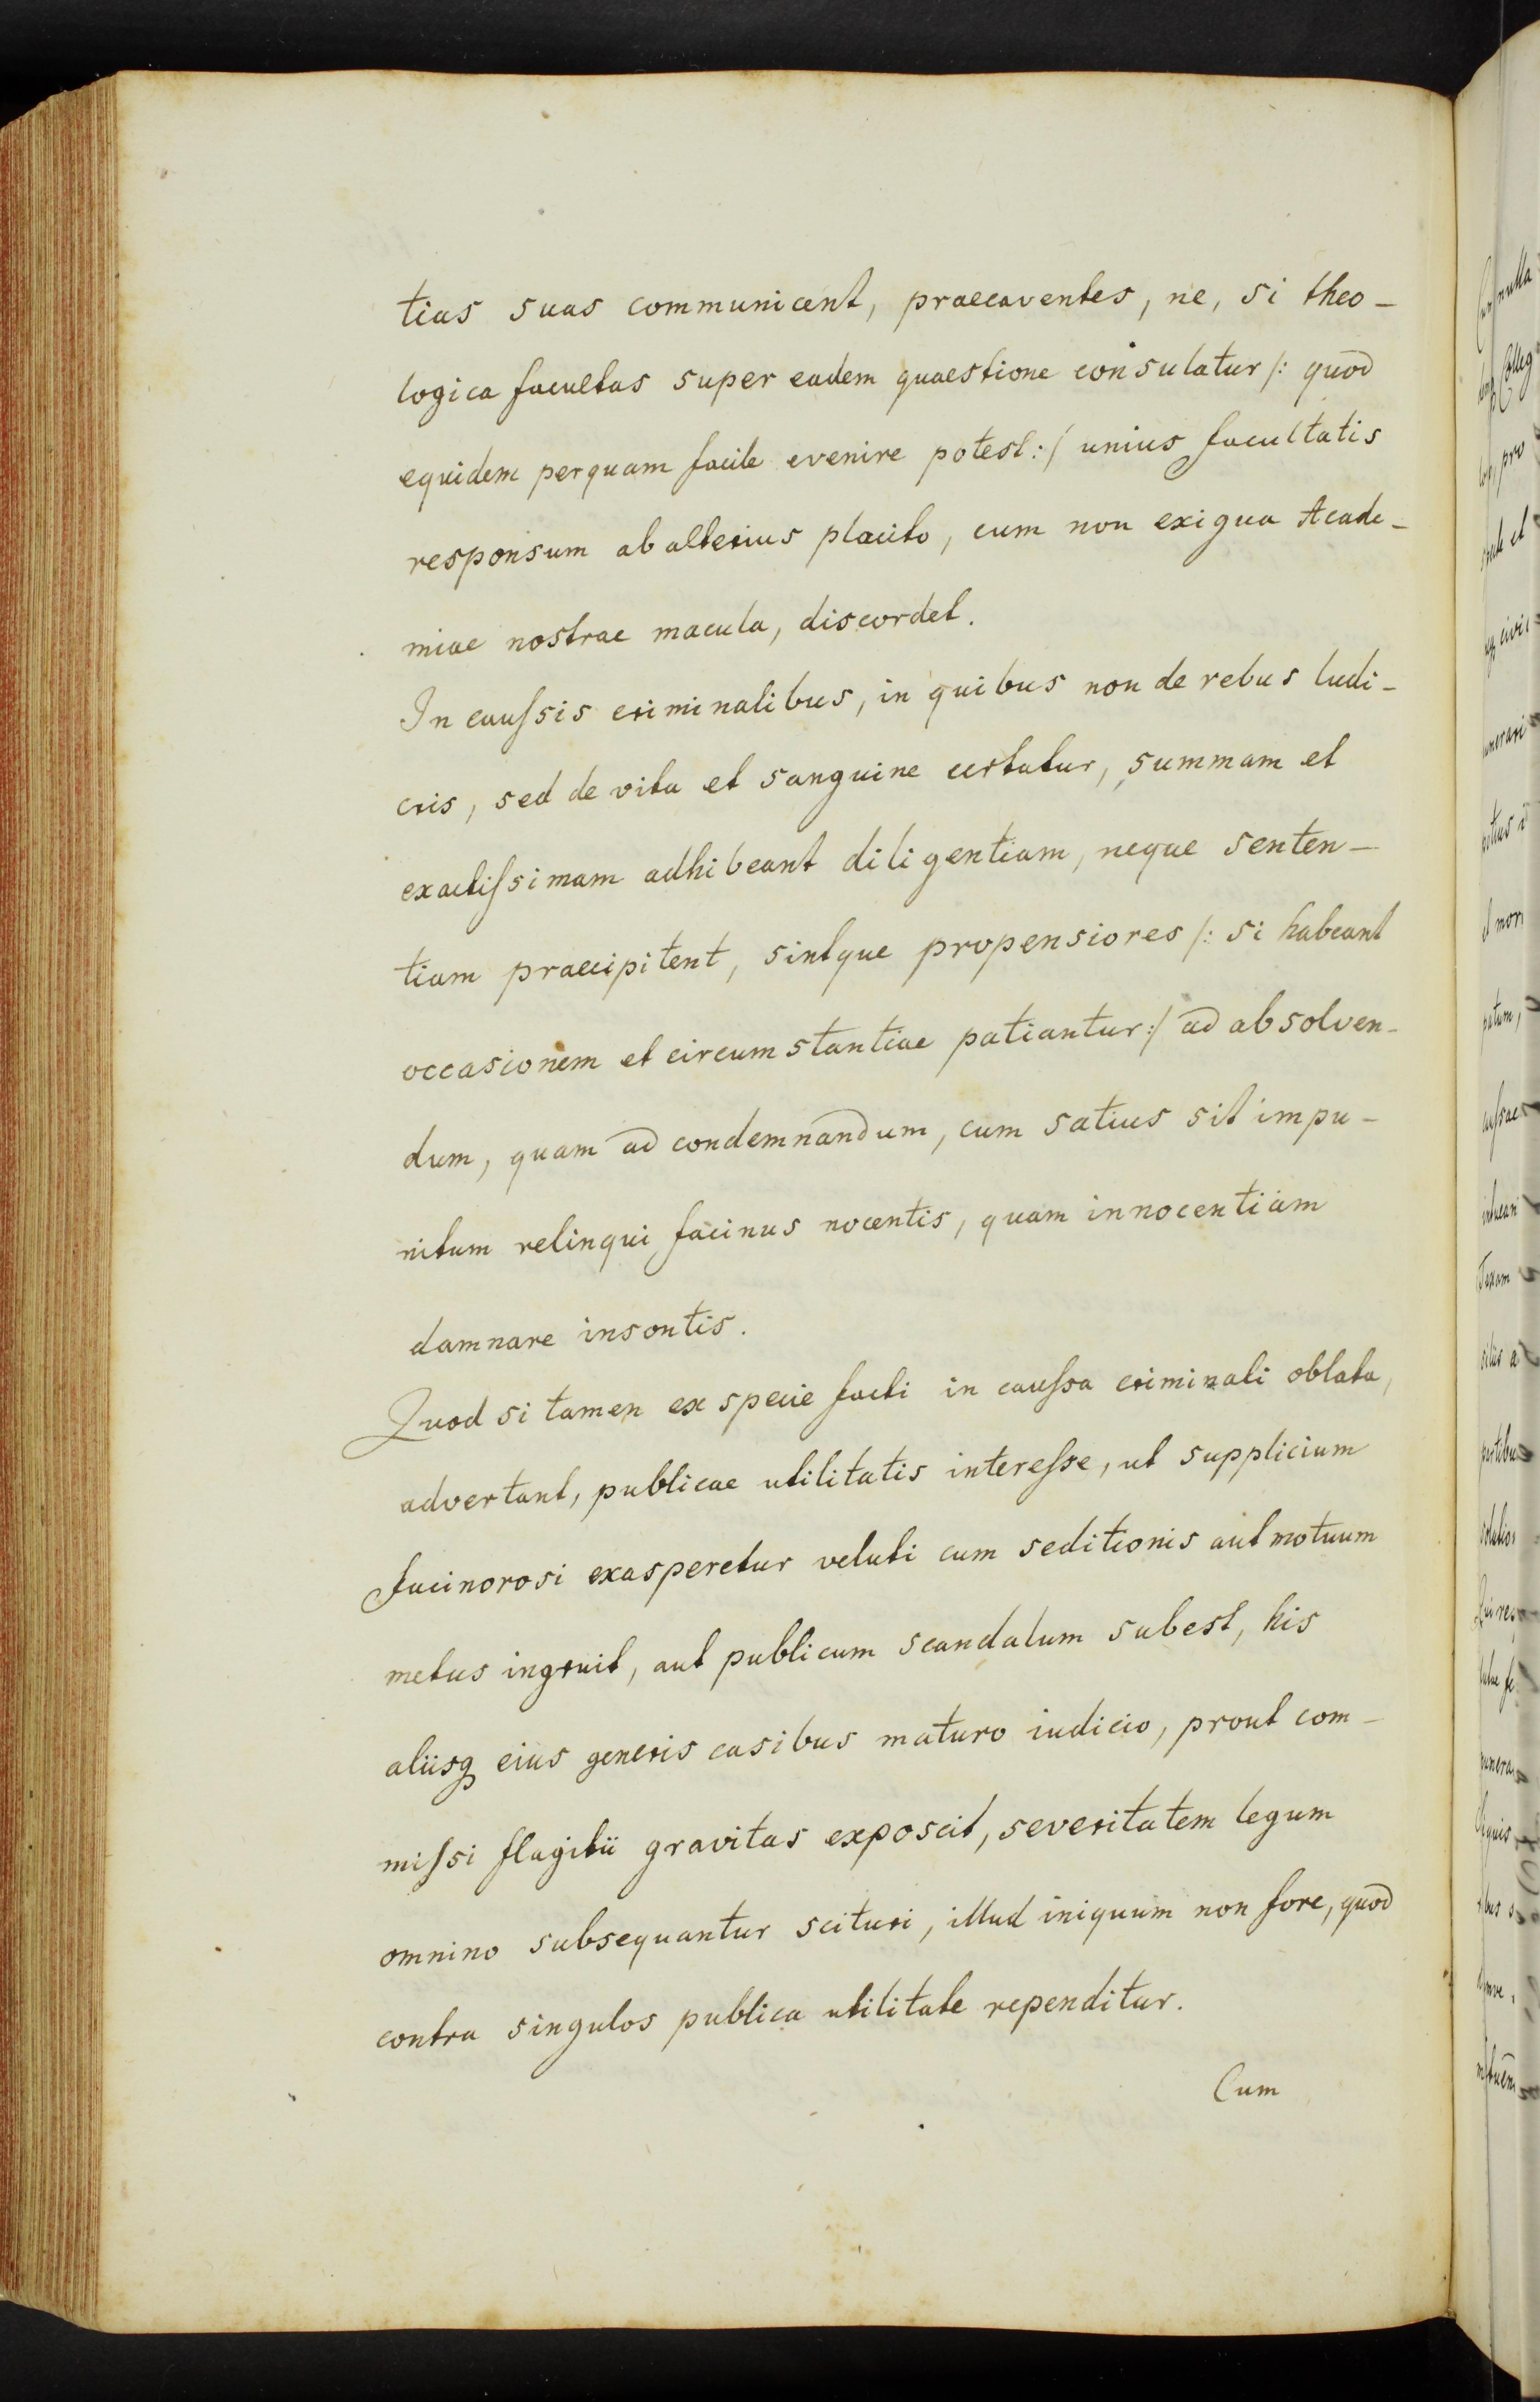 tias suas communicent, praecaventes, ne, si theo-
logica facultas super eadem quaestione consulatur /: quod
equidem perquam facile evenire potest :/ unius facultatis
responsum ab alterius placito, cum non exigua Acade-
miae nostrae macula, discordet.
In caussis criminalibus, in quibus non de rebus ludi-
cris, sed de vita et sanguine certatur, summam et
exactissimam adhibeant diligentiam, neque senten-
tiam praecipitent, sintque propensiores /: si habeant
occasionem et circumstantiae patiantur :/ ad absolven-
dum, quam ad condemnandum, cum satius sit impu-
nitum relinqui facinus nocentis, quam innocentiam
damnare insontis.
Quod si tamen ex specie facti in caussa criminali oblata,
advertant, publicae utilitatis interesse, ut supplicium
facinorosi exasperetur veluti cum seditionis aut motuum
metus ingruit, aut publicum scandalum subest, his
aliisq eius generis casibus maturo iudicio, prout com-
missi flagitii gravitas exposcit, severitatem legum
omnino subsequantur scituri, illud iniquum non fore, quod
contra singulos publica utilitate rependitur.
Cum